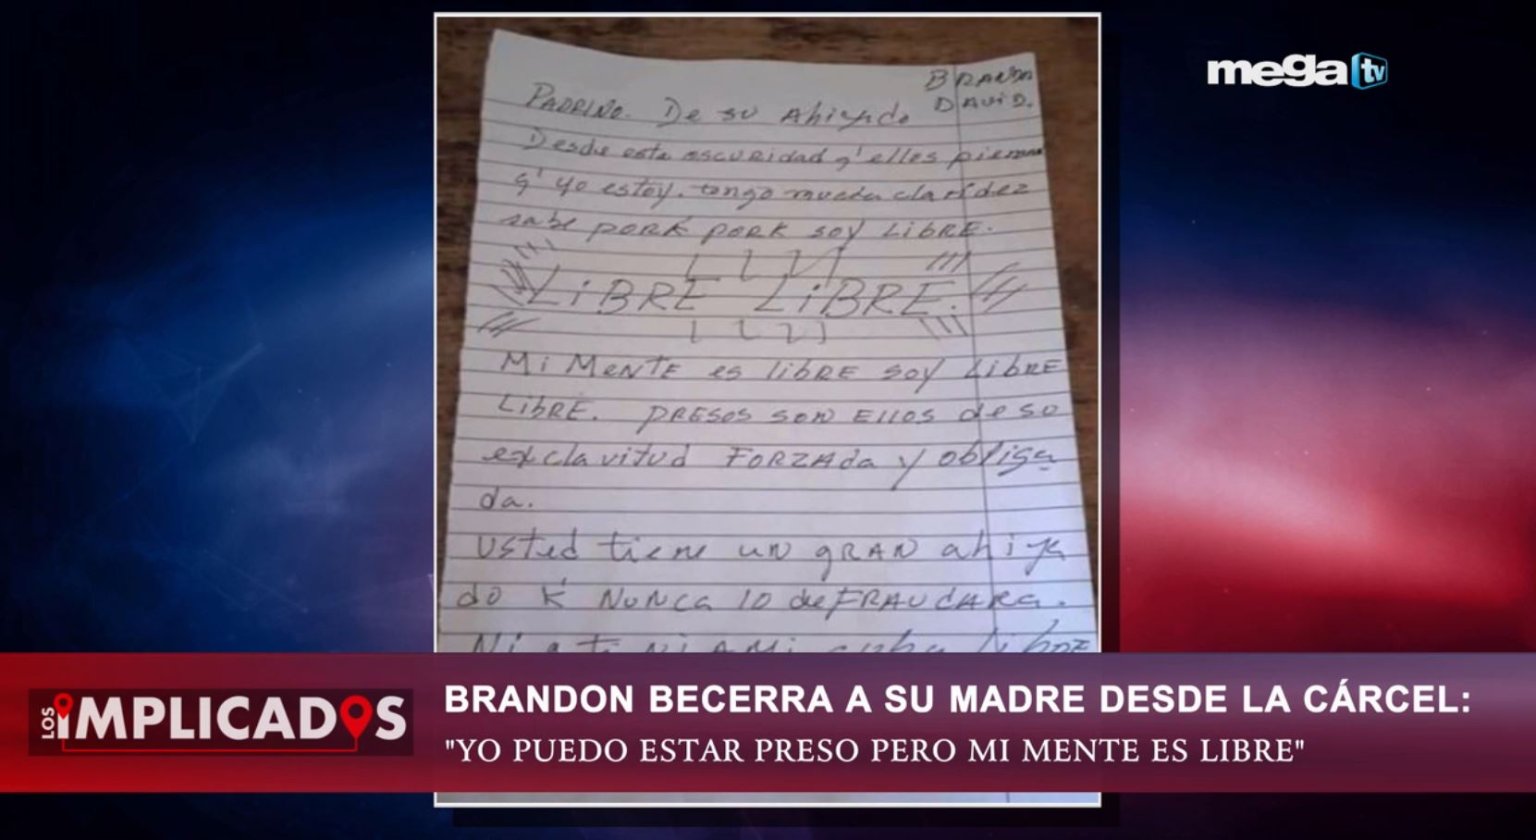 mega tv
BRANDN
DAVID.
PADRINO. De su Ahiyado
Desde esta oscuridad q' ellos piensan
q' yo estoy. tengo mucha claridez
sabe porK porK soy LiBRE.
LiBRE LiBRE.
Mi MeNTE es libRE soy LibRE
LibRE. PRESOS SON Ellos de su
exclavitud FORZAda y obliga
da.
usted tiene uN gRAN ahiya
do K' NuNca lo deFRAUdARa.
Ni a ti Ni A Mi cuba libRE
LOS IMPLICADOS
BRANDON BECERRA A SU MADRE DESDE LA CÁRCEL:
"YO PUEDO ESTAR PRESO PERO MI MENTE ES LIBRE"